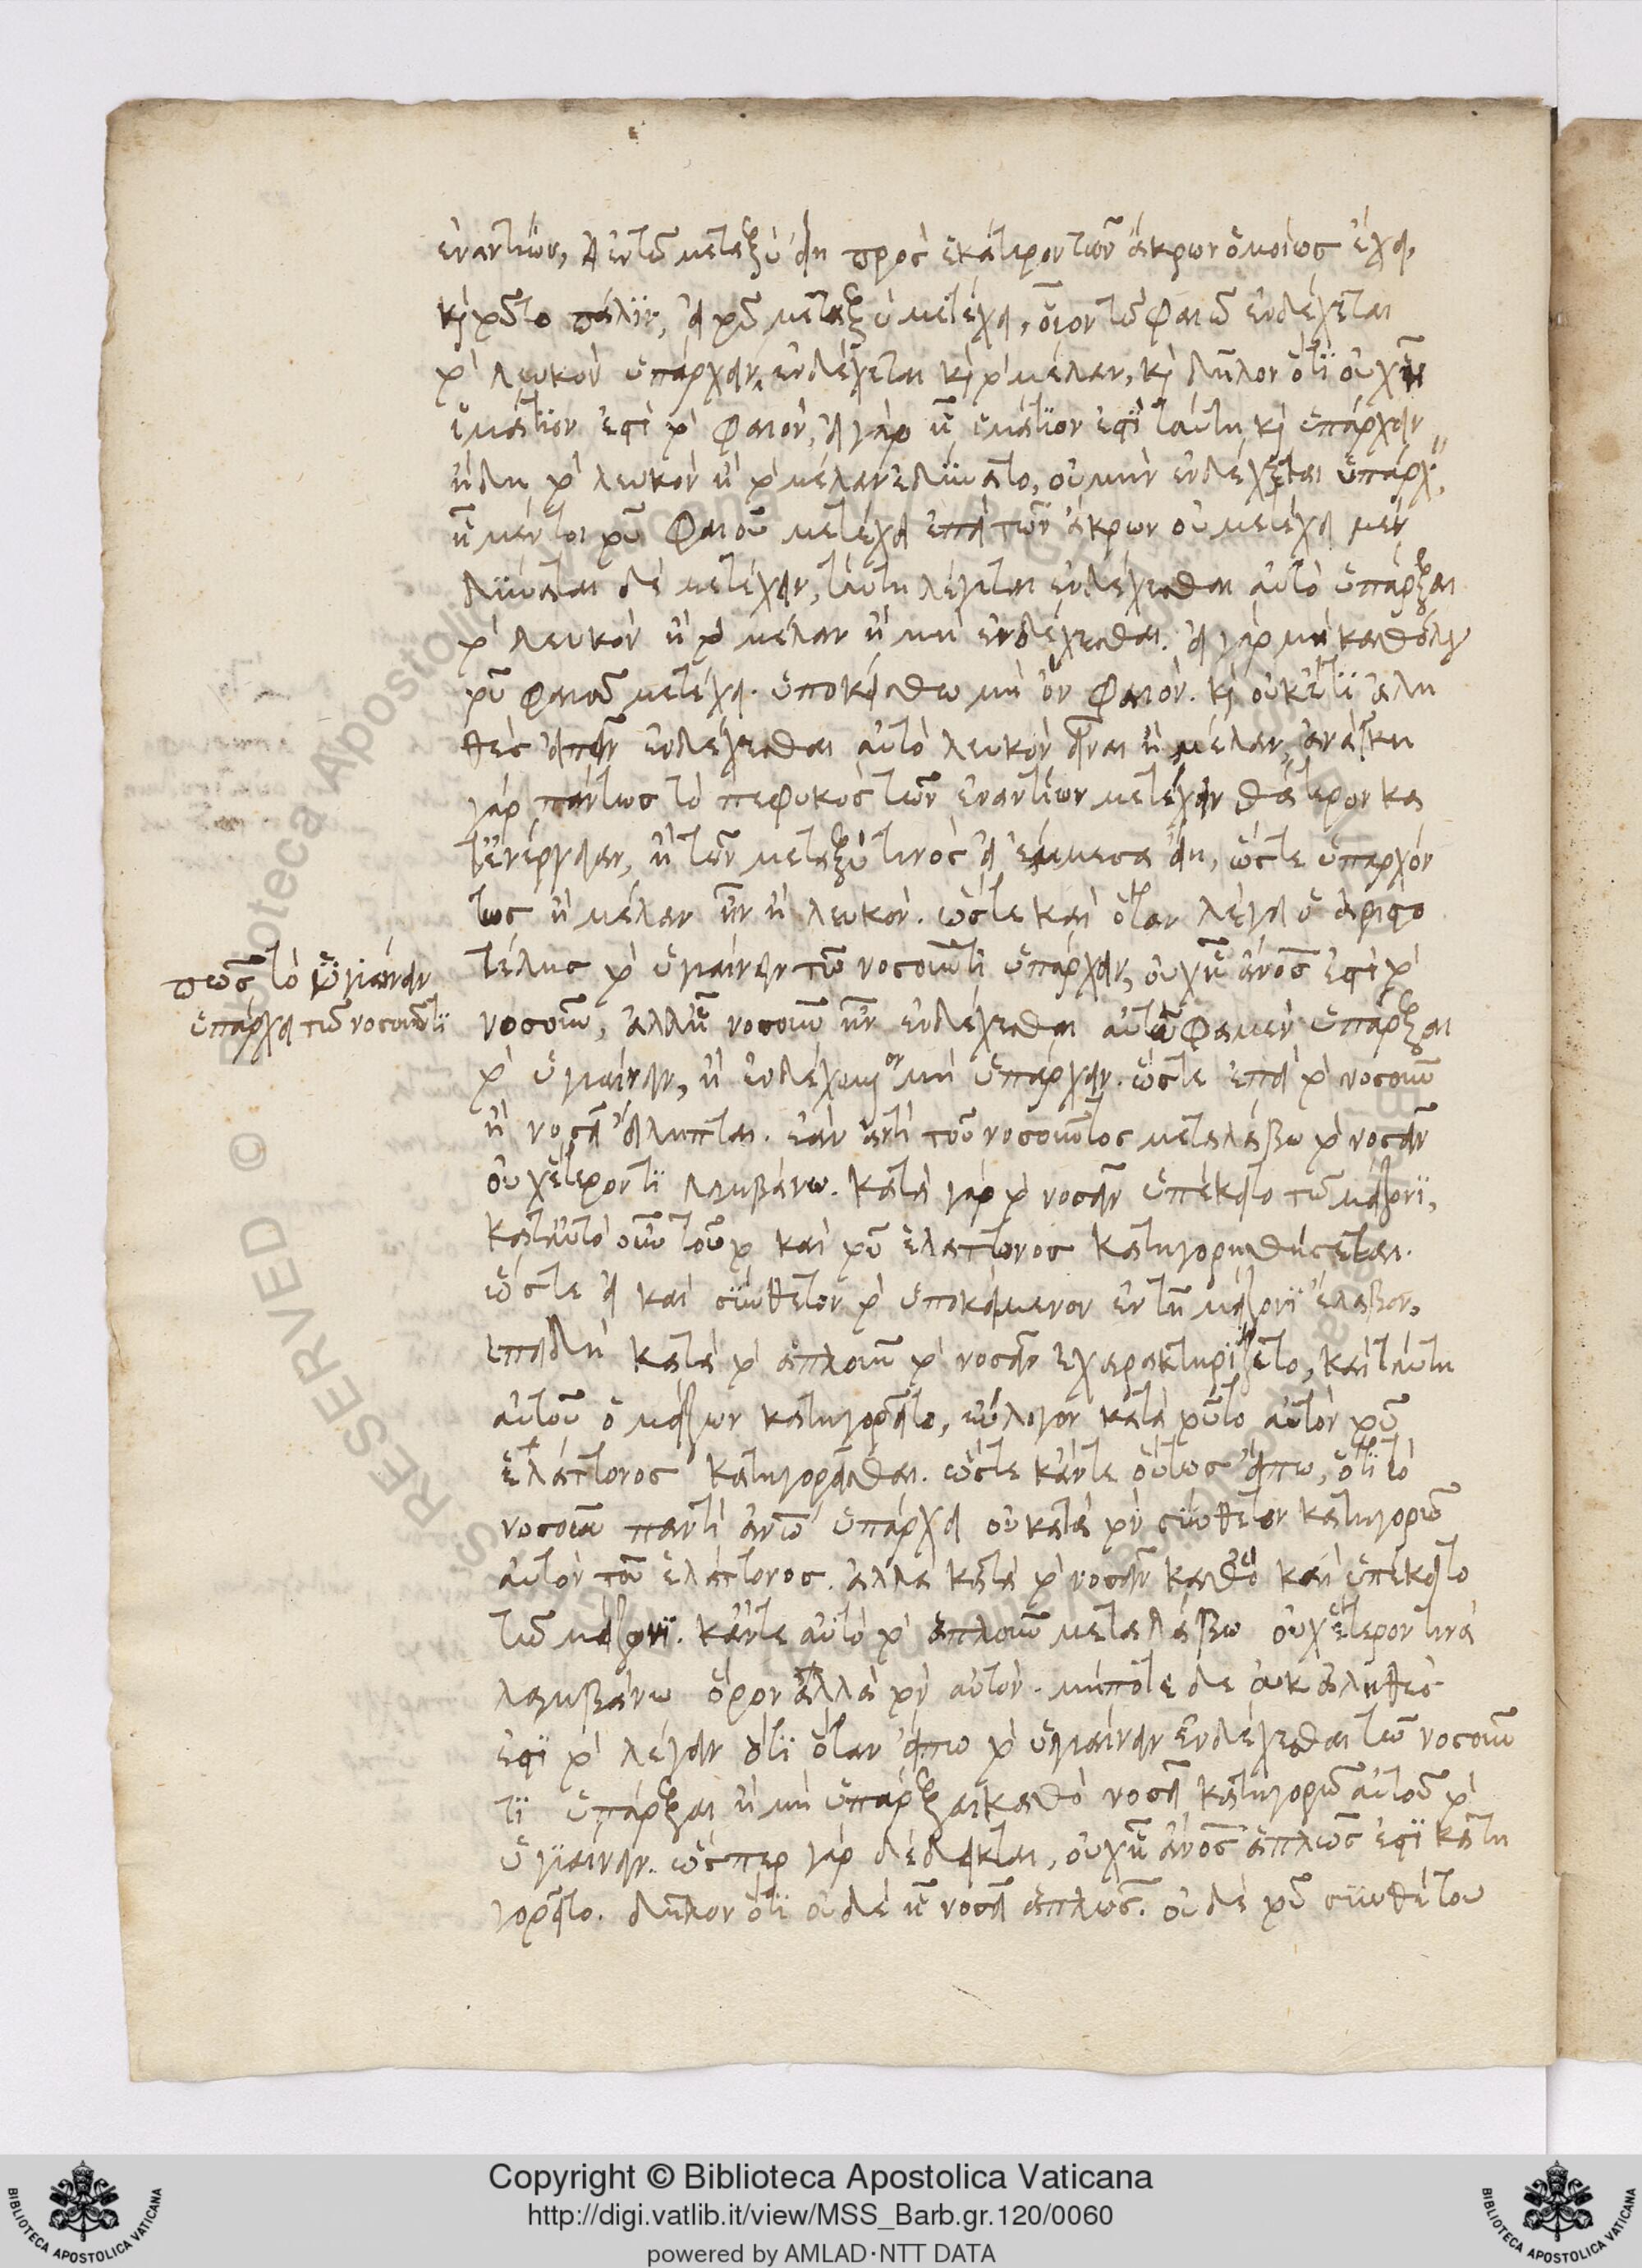 ἐναντίων, ἢ ἐν τῷ μεταξὺ ὂν πρὸς ἑκάτερον τῶν ἄκρων ὁμοίως ἔχει,
καὶ τοῦτο πάλιν, εἰ τοῦ μεταξὺ μετέχει, οἷον τῷ φαιῷ ἐνδέχεται
τὸ λευκὸν ὑπάρχειν, ἐνδέχεται καὶ τὸ μέλαν, καὶ δῆλον ὅτι οὐχ ᾗ
ἱμάτιόν ἐστι τὸ φαιόν, εἰ γὰρ ᾗ ἱμάτιόν ἐστι ταύτη καὶ ὑπάρχειν
ἤδη τὸ λευκὸν ἢ τὸ μέλαν ἐδύνατο, οὐ μὴν ἐνδέχεται ὑπάρχειν
ᾗ μέντοι τοῦ φαιοῦ μετέχει ἐπεὶ τῶν ἄκρων οὐ μετέχει μὲν
δύναται δὲ μετέχειν, ταύτη λέγεται ἐνδέχεσθαι αὐτὸ ὑπάρξαι
τὸ λευκὸν ἢ τὸ μέλαν ἢ μὴ ἐνδέχεσθαι. εἰ γὰρ μὴ καθόλου
τοῦ φαιοῦ μετέχει. ὑποκείσθω μὴ ὂν φαιόν. καὶ οὐκέτι ἀλη
θὲς εἰπεῖν ἐνδέχεσθαι αὐτὸ λευκὸν εἶναι ἢ μέλαν, ἀνάγκη
γὰρ πάντως τὸ πεφυκὸς τῶν ἐναντίων μετέχειν θάτερον κα
τ' ἐνέργειαν, ἢ τῶν μεταξύ τινος εἰ ἔμμεσα εἴη, ὥστε ὑπαρχόν
τως ἢ μέλαν ἦν ἢ λευκόν. ὥστε καὶ ὅταν λέγει ὁ ἀριστο
τέλης τὸ ὑγιαίνειν τῷ νοσοῦντι ὑπάρχειν, οὐχ ᾗ ἄνος ἐστὶ τὸ
νοσοῦν, ἀλλ' ᾗ νοσοῦν ἦν ἐνδέχεσθαι αὐτῷ φαμὲν ὑπάρξαι
τὸ ὑγιαίνειν, ἢ ἐνδεχόμενον μὴ ὑπάρχειν. ὥστε ἐπεὶ τὸ νοσοῦν
ᾗ νοσεῖ εἴληπται. ἐὰν ἀντὶ τοῦ νοσοῦντος μεταλάβω τὸ νοσεῖν
οὐχ ἕτερόν τι λαμβάνω. κατὰ γὰρ τὸ νοσεῖν ὑπέκειτο τῷ μείζονι,
κατ' αὐτὸ οὖν τοῦτο καὶ τοῦ ἐλάττονος κατηγορηθήσεται.
ὥστε εἰ καὶ σύνθετον τὸ ὑποκείμενον ἐν τῇ μείζονι ἔλαβον,
ἐπειδὴ κατὰ τὸ ἁπλοῦν τὸ νοσεῖν ἐχαρακτηρίζετο, καὶ ταύτη
αὐτοῦ ὁ μείζων κατηγορεῖτο, εὔλογον κατὰ τοῦτο αὐτὸν τοῦ
ἐλάττονος κατηγορεῖσθαι. ὥστε κἄν τε οὕτως εἴπω, ὅτι τὸ
νοσοῦν παντὶ ἀνῳ ὑπάρχει οὐ κατὰ τὸν σύνθετον κατηγορῶ
αὐτὸν τοῦ ἐλάττονος. ἀλλὰ κατὰ τὸ νοσεῖν καθὸ καὶ ὑπέκειτο
τῷ μείζονι. κἄν τε αὐτὸ τὸ ἁπλοῦν μεταλάβω οὐχ ἕτερόν τινα
λαμβάνω ὅρον ἀλλὰ τὸν αὐτόν. μήποτε δὲ οὐκ ἀληθές
ἐστι τὸ λέγειν ὅτι ὅταν εἴπω τὸ ὑγιαίνειν ἐνδέχεσθαι τῷ νοσοῦν
τι ὑπάρξαι ἢ μὴ ὑπάρξαι καθὸ νοσεῖ κατηγορῶ αὐτοῦ τὸ
ὑγιαίνειν. ὥσπερ γὰρ δέδεικται, οὐχ ᾗ ἄνος ἁπλῶς ἐστι κατη
γορεῖτο. δῆλον ὅτι οὐδὲ ᾗ νοσεῖ ἁπλῶς. οὐδὲ τοῦ συνθέτου
πῶς τὸ ὑγιαίνειν
ὑπάρχει τῷ νοσοῦντι
Copyright © Biblioteca Apostolica Vaticana
http://digi.vatlib.it/view/MSS_Barb.gr.120/0060
powered by AMLAD·NTT DATA
BIBLIOTECA APOSTOLICA VATICANA
BIBLIOTECA APOSTOLICA VATICANA